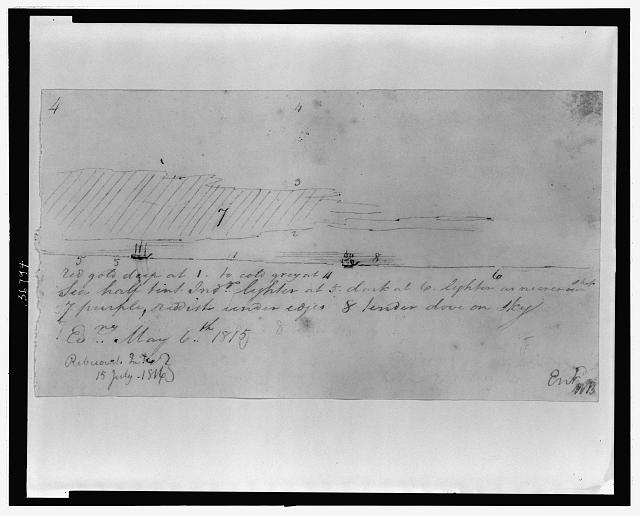 4 4
1
3
7
2
5 5 11 8
6
red gold deep at 1. to cold grey at 4
Sea half tint Ind.o lighter at 5. dark at 6. lighter as nearer
7 purple, redish under edges 8 tender dove on sky
Ed.ng May 6.th 1815
8
15 July. 1816
Ent.d
WB
36794